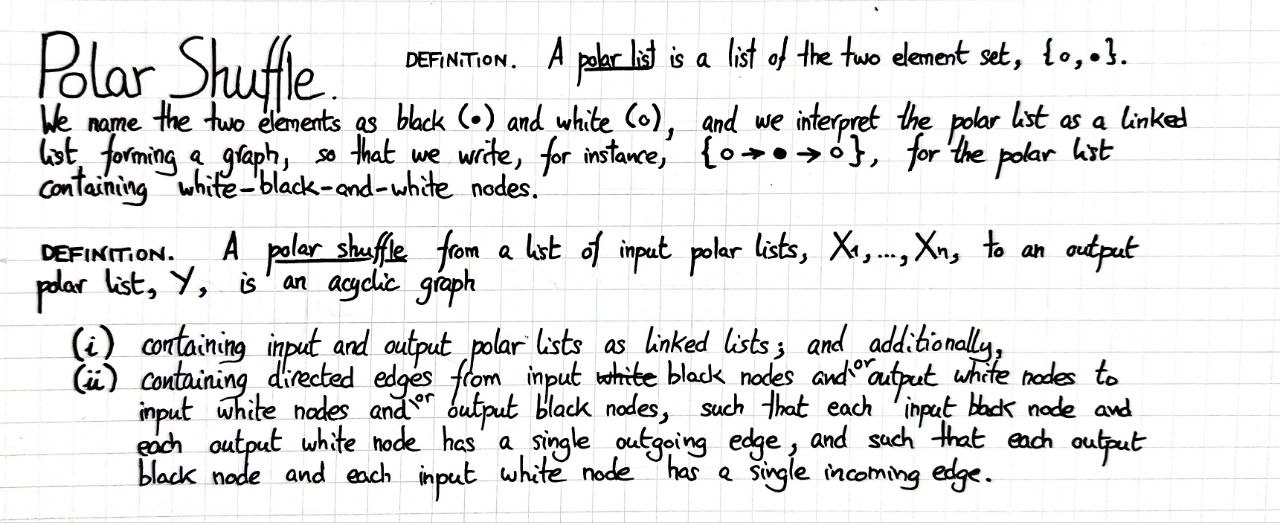 Polar Shuffle. DEFINITION. A polar list is a list of the two element set, {∘,•}.
We name the two elements as black (•) and white (∘), and we interpret the polar list as a linked
list forming a graph, so that we write, for instance, {∘→•→∘}, for the polar list
containing white-black-and-white nodes.
DEFINITION. A polar shuffle from a list of input polar lists, X₁,...,Xn, to an output
polar list, Y, is an acyclic graph
(i) containing input and output polar lists as linked lists; and additionally,
(ii) containing directed edges from input white black nodes and\or output white nodes to
input white nodes and\or output black nodes, such that each input black node and
each output white node has a single outgoing edge, and such that each output
black node and each input white node has a single incoming edge.